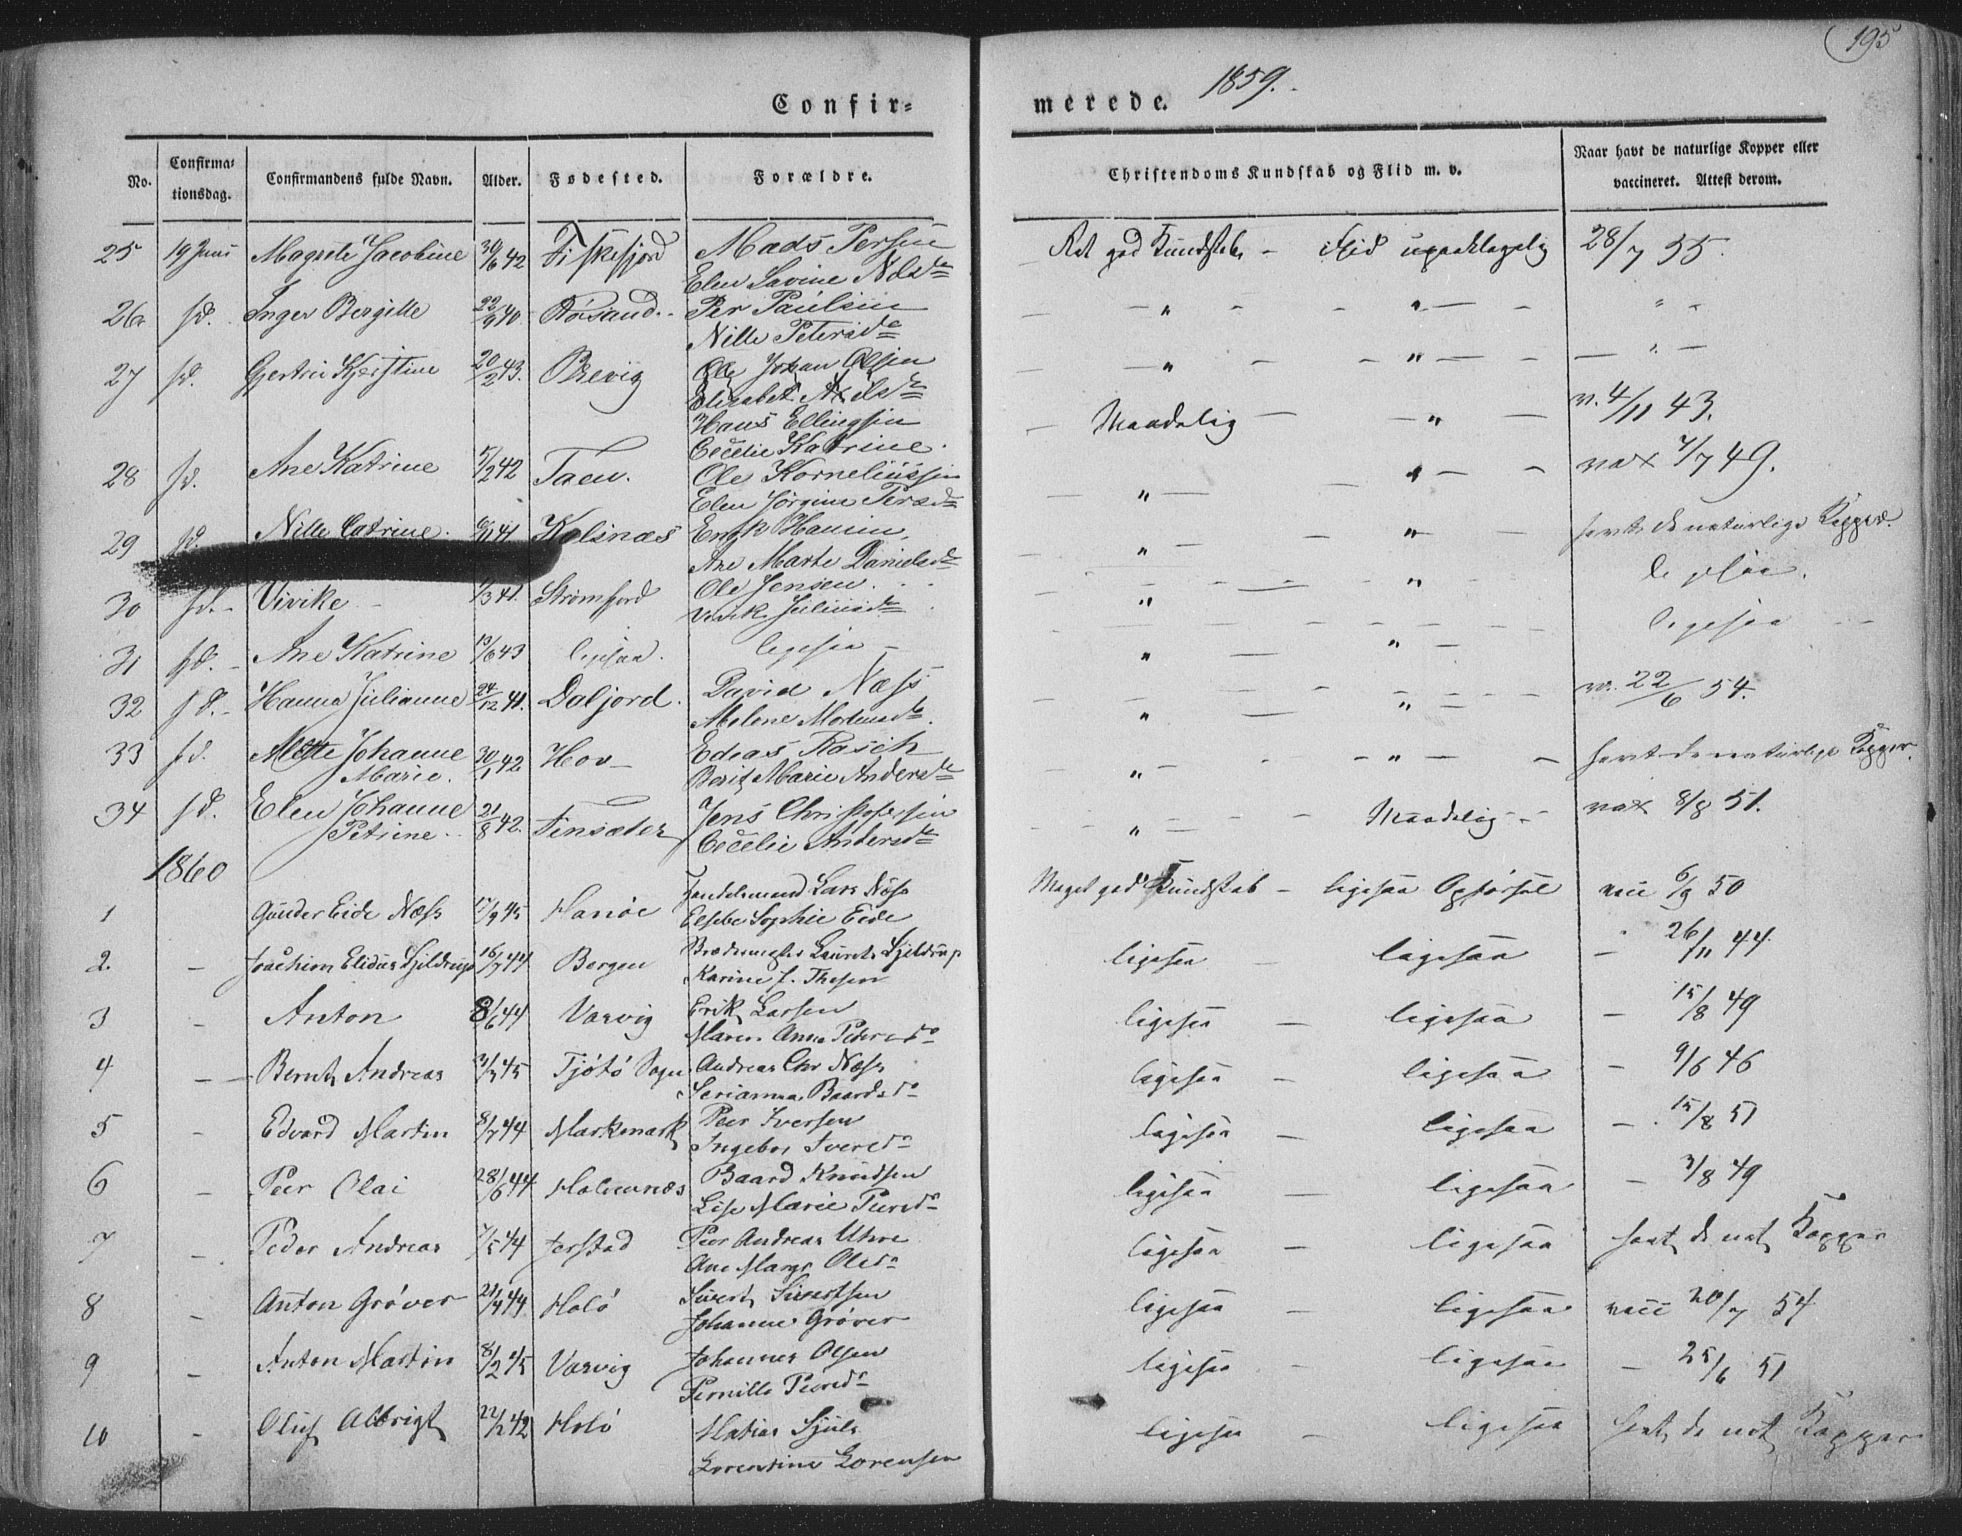 195
1859.
Confir=
merede.
No.
Confirma=
tionsdag.
Confirmandens fulde Navn.
Alder.
Fødested.
Forældre.
Christendoms Kundskab og Flid m. v.
Naar havt de naturlige Kopper eller
vaccineret. Attest derom.
25 19 Juni Magrete Jacobine 30/6 42 Fiskefjord Mads Persen Ret god Kundskab - Flid upaaklagelig 28/7 55.
Elen Lavine Nelsd
26 sd. Inger Bergitte 22/9 40. Røsand. Per Paulsen " " "
Nille Petersd
27 sd. Gjertru Kjerstine 20/2 43. Brevig Ole Johan Olsen " "
Elisabet Nilsd
Hans Ellingsen Maadelig " v. 4/11 43.
Cecelie Katrine
28 sd. Ane Katrine 2 42 Taen. Ole Korneliussen " " vax 7/7 49.
Elen Jørgine Persd
29 sd. Nille Catrine. 41 Kalsnæs Hansen " " havt de naturlige Kopper.
Ane Marte Danielsd
30 sd. Vivike 3 41. Strømfjord Ole Jensen " " ligesaa.
Juliusd
31 sd. Ane Katrine 13/6 43 ligesaa. ligesaa " " ligesaa
32 sd. Hanna Julianne 24/12 41. Daljord. David Næss " " v. 22/6 54.
Melene Mortensd
33 sd. Mette Johanne 30/1 42 Hov Edeas Rasch " " havt de naturlige Kopper.
Marie. Berit Marie Andersd
34 sd. Elen Johanne 21/8 42. Finsæter Jens Christophersen " Maadelig vax 8/8 51.
Petrine. Cecelie Andersd
1860
1 Gunder Eide Næss 17/9 45 Hanöe Handelsmand Lars Næss Meget god Kundskab - ligesaa Opførsel vacc 6/9 50
Elsebe Sophie Eide
2. - Joachim Elidus Hjeldrup 16/7 44 Bergen Laurits Hjeldrup ligesaa ligesaa - 26/11 44.
Karine J. Thesen
3 - Anton 8/6 44 Varvig Erik Larsen ligesaa - ligesaa - 15/8 49
Maren Anna Petersd
4 - Bernt Andreas 3/7 45 Tjötö Sogn Andreas Chr Næss ligesaa - ligesaa - 9/6 46
Serianna Baardsd
5 - Edvard Martin 8/7 44 Markmark Peer Iversen ligesaa - ligesaa - 15/8 51
Ingebor Iversd
6 - Peer Olai 28/6 44 Holmnæs Baard Knudsen ligesaa - ligesaa - 3/8 49
Lise Marie Peersd
7 - Peder Andreas 7/5 44 Jerstad Peer Andreas ligesaa - ligesaa havt de nat Kopper
Ane Margr Olsd
8 - Anton Gröver 21/4 44 Holö Sivert Sivertsen ligesaa - ligesaa vacc 20/7 54
Johanne Gröver
9 - Anton Martin 8/2 45 Varvig Johannes Olsen ligesaa - ligesaa - 25/6 51
Pernille Peersd
10 - Oluf Albrigt 22/12 42 Holö Matias Hjuls ligesaa - ligesaa havt de nat Kopper
Lorentine Lorensen